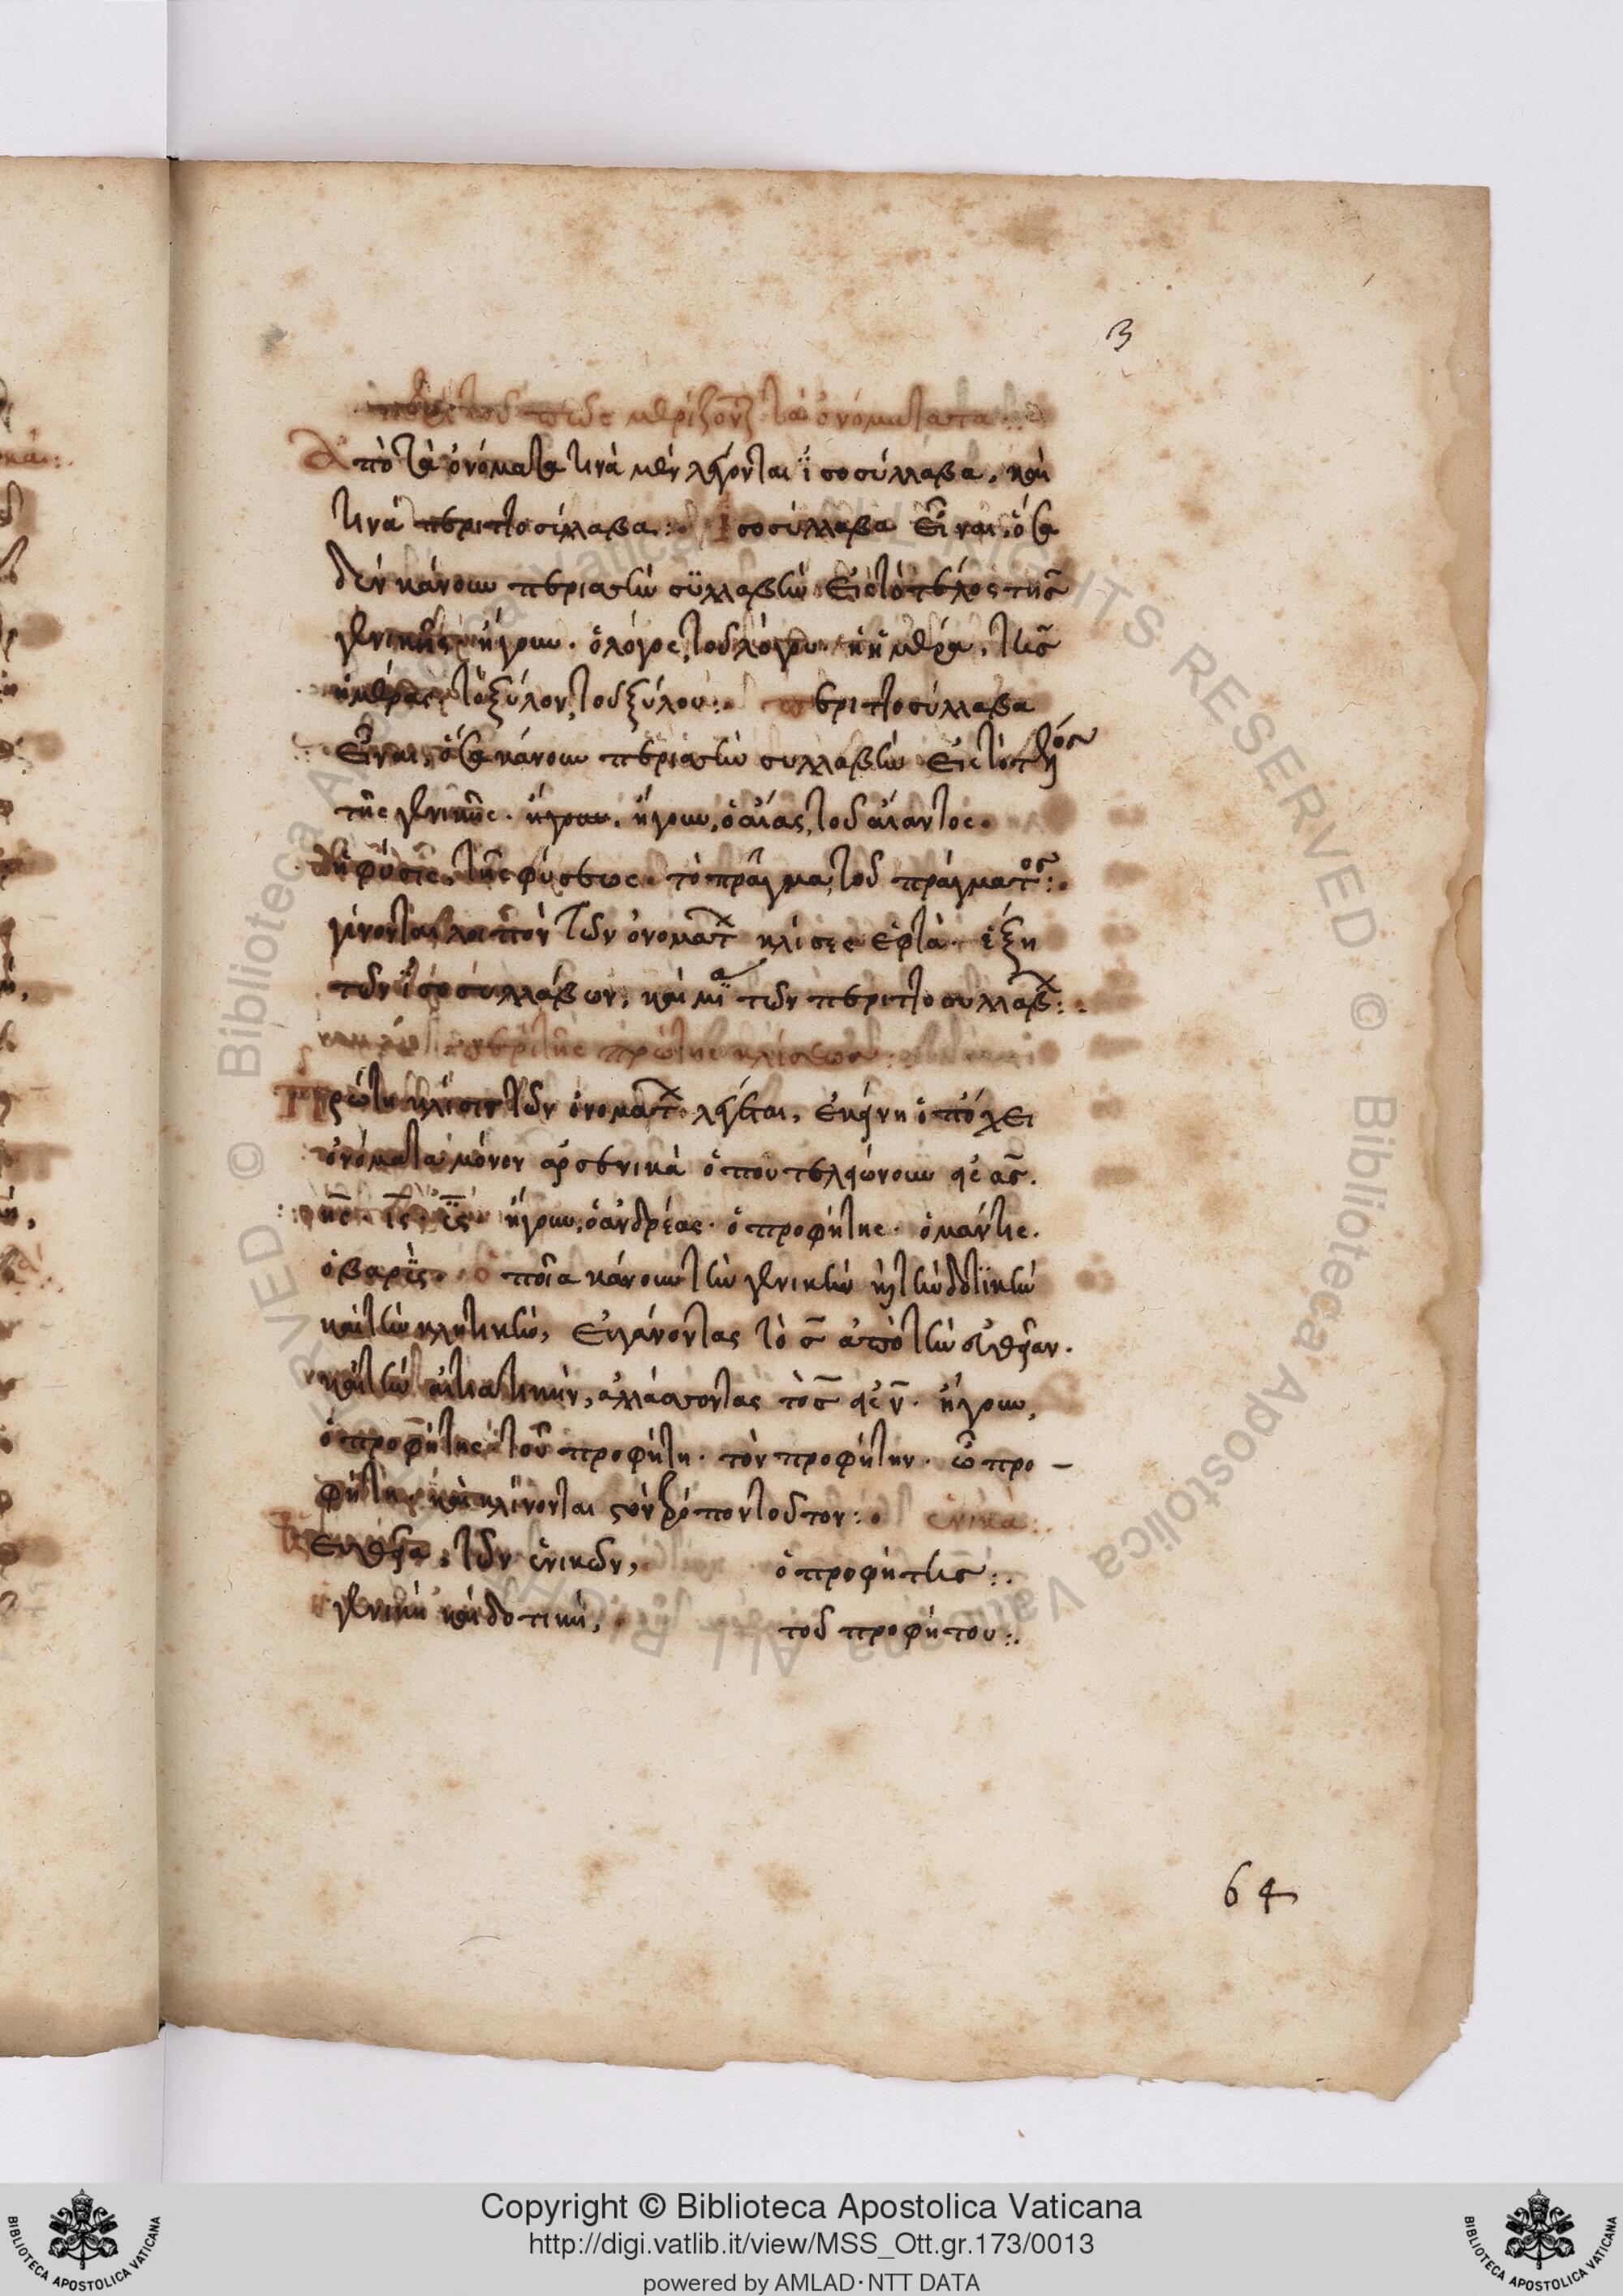 3
περὶ τοῦ πῶς μερίζονται τὰ ὀνόματα
Ἀπὸ τὰ ὀνόματα τινὰ μὲν λέγονται ἰσοσύλλαβα. καὶ
τινὰ περιττοσύλλαβα:. Ἰσοσύλλαβα εἶναι, ὅσα
δὲν κάνουν περισσὴν συλλαβὴν εἰς τὸ τέλος τῆς
γενικῆς ἤγουν. ὁ λόγος, τοῦ λόγου. ἡ ἡμέρα, τῆς
ἡμέρας, τὸ ξύλον, τοῦ ξύλου:. περιττοσύλλαβα
εἶναι, ὅσα κάνουν περισσὴν συλλαβὴν εἰς τὸ τέλος
τῆς γενικῆς. ἤγουν. ἤγουν, ὁ αἴας, τοῦ αἴαντος.
ἡ φύσις, τῆς φύσεως. τὸ πρᾶγμα, τοῦ πράγματος:.
γίνονται λοιπὸν τῶν ὀνομάτων κλίσες ἑφτά. ἕξη
τῶν ἰσοσυλλάβων, καὶ μία τῶν περιττοσυλλάβων:.
περὶ τῆς πρώτης κλίσεως:
Πρώτη κλίσις τῶν ὀνομάτων λέγεται, ἐκείνη ὁπόχει
ὀνόματα μόνον ἀρσενικὰ ὁποῦ τελειώνουν εἰς ας.
ης. ις. ϋς ἤγουν, ὁ ἀνδρέας. ὁ προφήτης. ὁ μάντις.
ὁ βαρῢς. ποῖα κάνουν τὴν γενικὴν καὶ τὴν δοτϊκὴν
καὶ τὴν κλητικὴν, εὐγάνοντας τὸ ς ἀπὸ τὴν εὐθεῖαν.
καὶ τὴν αἰτιατικὴν, ἀλλάσσοντας τὸ ς εἰς ν. ἤγουν,
ὁ προφήτης τοῦ προφήτη. τὸν προφήτην. ὦ προ-
φήτη, καὶ κλίνονται τὸν τρόπον τοῦτον:. ἑνικά:.
Εὐθεῖα, τῶν ἑνικῶν, ὁ προφήτης:.
γενικὴ καὶ δοτικὴ, τοῦ προφήτου:.
64
© Biblioteca Apostolica Vaticana ALL RIGHTS RESERVED © Biblioteca Apostolica Vaticana ALL RIGHTS RESERVED
BIBLIOTECA APOSTOLICA VATICANA
Copyright © Biblioteca Apostolica Vaticana
http://digi.vatlib.it/view/MSS_Ott.gr.173/0013
powered by AMLAD·NTT DATA
BIBLIOTECA APOSTOLICA VATICANA